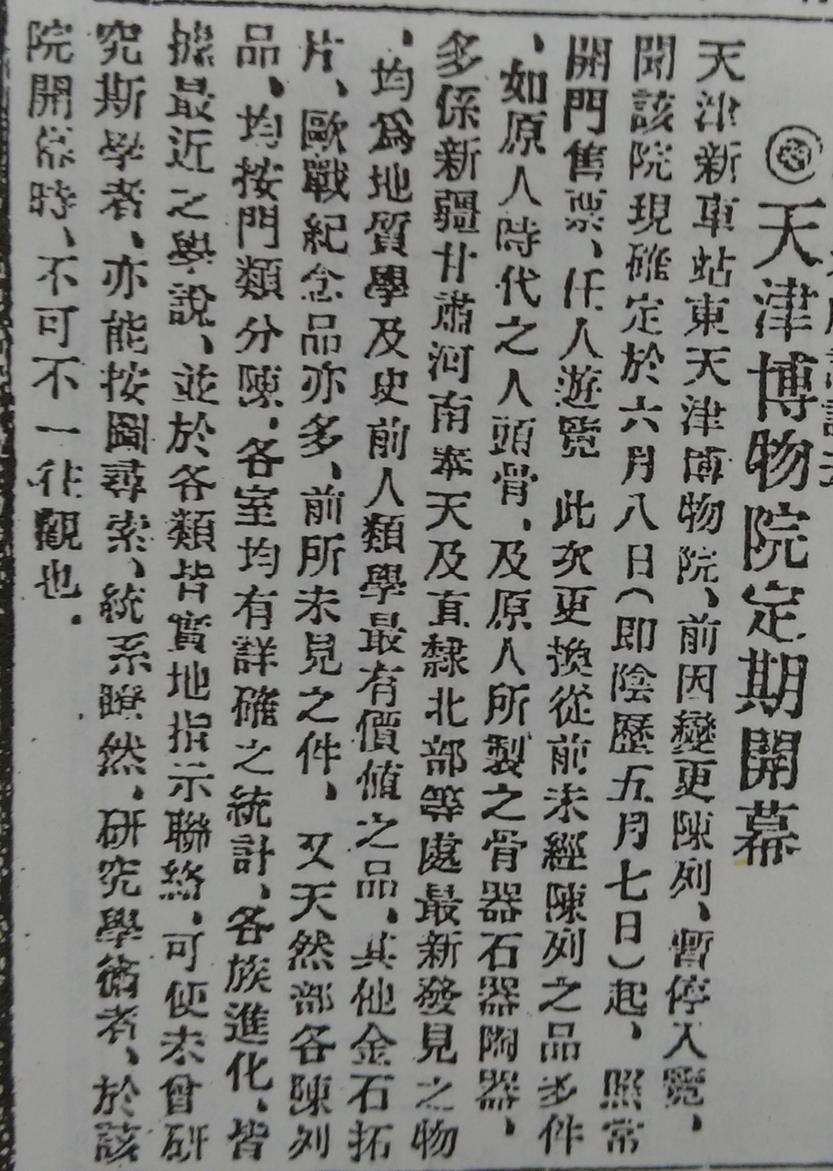 ◎天津博物院定期開幕
天津新車站東天津博物院、前因變更陳列、暫停入覽、
聞該院現確定於六月八日(即陰歷五月七日)起、照常
開門售票、任人遊覽 此次更換從前未經陳列之品多件
、如原人時代之人頭骨、及原人所製之骨器石器陶器、
多係新疆甘肅河南奉天及直隸北部等處最新發見之物
、均爲地質學及史前人類學最有價值之品、其他金石拓
片、歐戰紀念品亦多、前所未見之件、又天然部各陳列
品、均按門類分陳、各室均有詳確之統計、各族進化、皆
據最近之學說、並於各類皆實地指示聯絡、可使未曾研
究斯學者、亦能按圖尋索、統系瞭然、研究學術者、於該
院開幕時、不可不一往觀也.